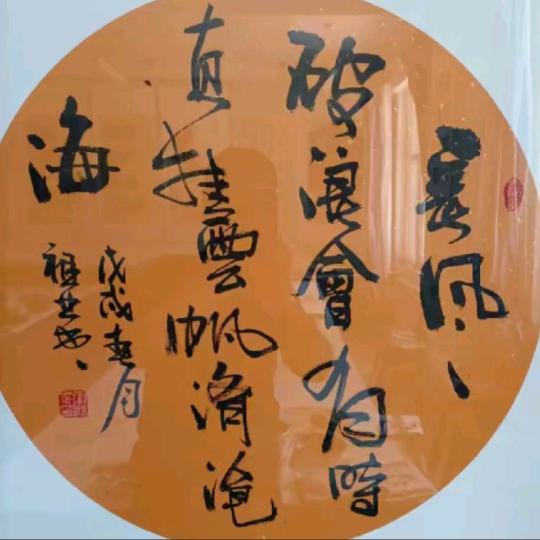 長风
破浪會有時
直挂雲帆济沧
海
戊戌春月